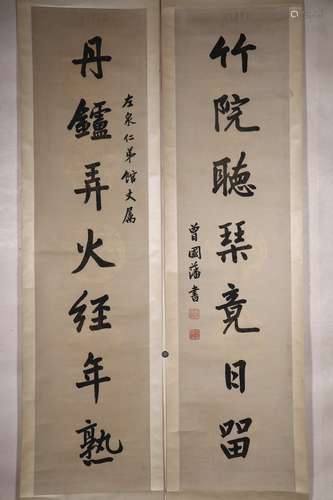 竹院聴琹竟日留
丹鑪弄火經年熟
左泉仁弟館丈屬
曾國藩書